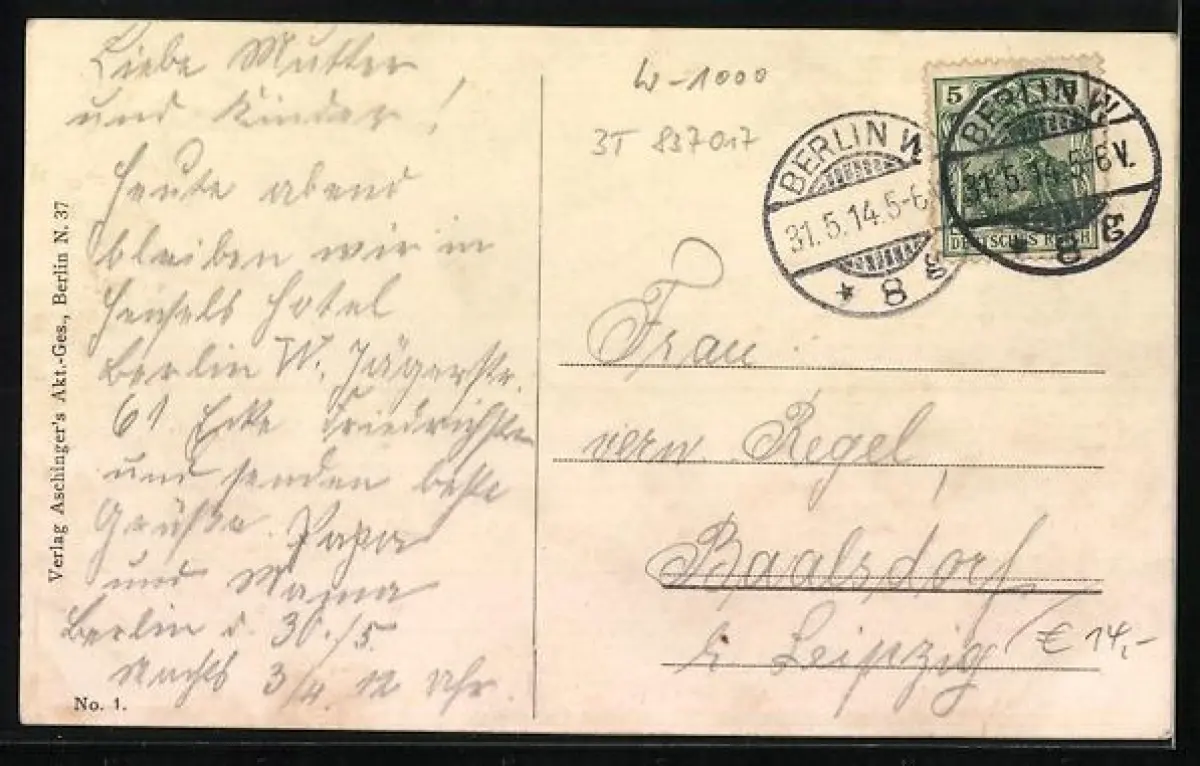 Liebe Mutter
und Kinder!
Heute abend
bleiben wir in
Hensels Hotel
Berlin W. Jägerstr.
61 Ecke Friedrichstr
und senden beste
Grüße Papa
und Mama
Berlin d. 30./5.
Nachts 3/4 12 Uhr.
No. 1.
Verlag Aschinger's Akt.-Ges., Berlin N. 37
W-1000
3T 837017
BERLIN W
31.5.14.5-6
* 8
5
DEUTSCHES REICH
BERLIN W
31.5.14.5-6V.
8
Frau
verw. Regel,
Baalsdorf
b Leipzig
€ 14,-